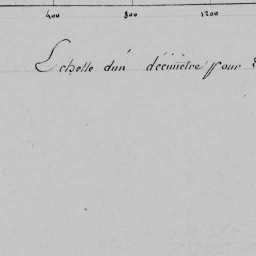 400 800 1200
Echelle d'un décimètre pour